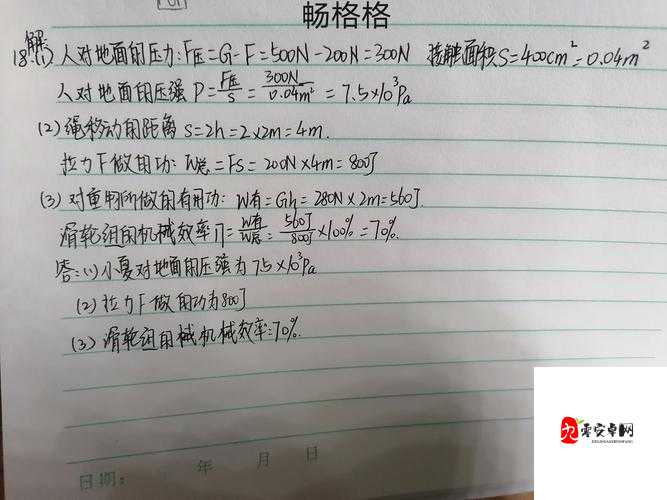 畅格格
解
18.(1) 人对地面的压力:F压=G-F=500N-200N=300N 接触面积S=400cm²=0.04m²
人对地面的压强 P=F压/S=300N/0.04m²=7.5×10³Pa
(2) 绳移动的距离 s=2h=2×2m=4m.
拉力F做的功: W总=Fs=200N×4m=800J
(3) 对重物所做的有用功: W有=Gh=280N×2m=560J.
滑轮组的机械效率η=W有/W总=560J/800J×100%=70%.
答:(1)小夏对地面的压强为7.5×10³Pa
(2) 拉力F做的功为800J
(3) 滑轮组的械机械效率:70%.
日期: 年 月 日
零安卓网